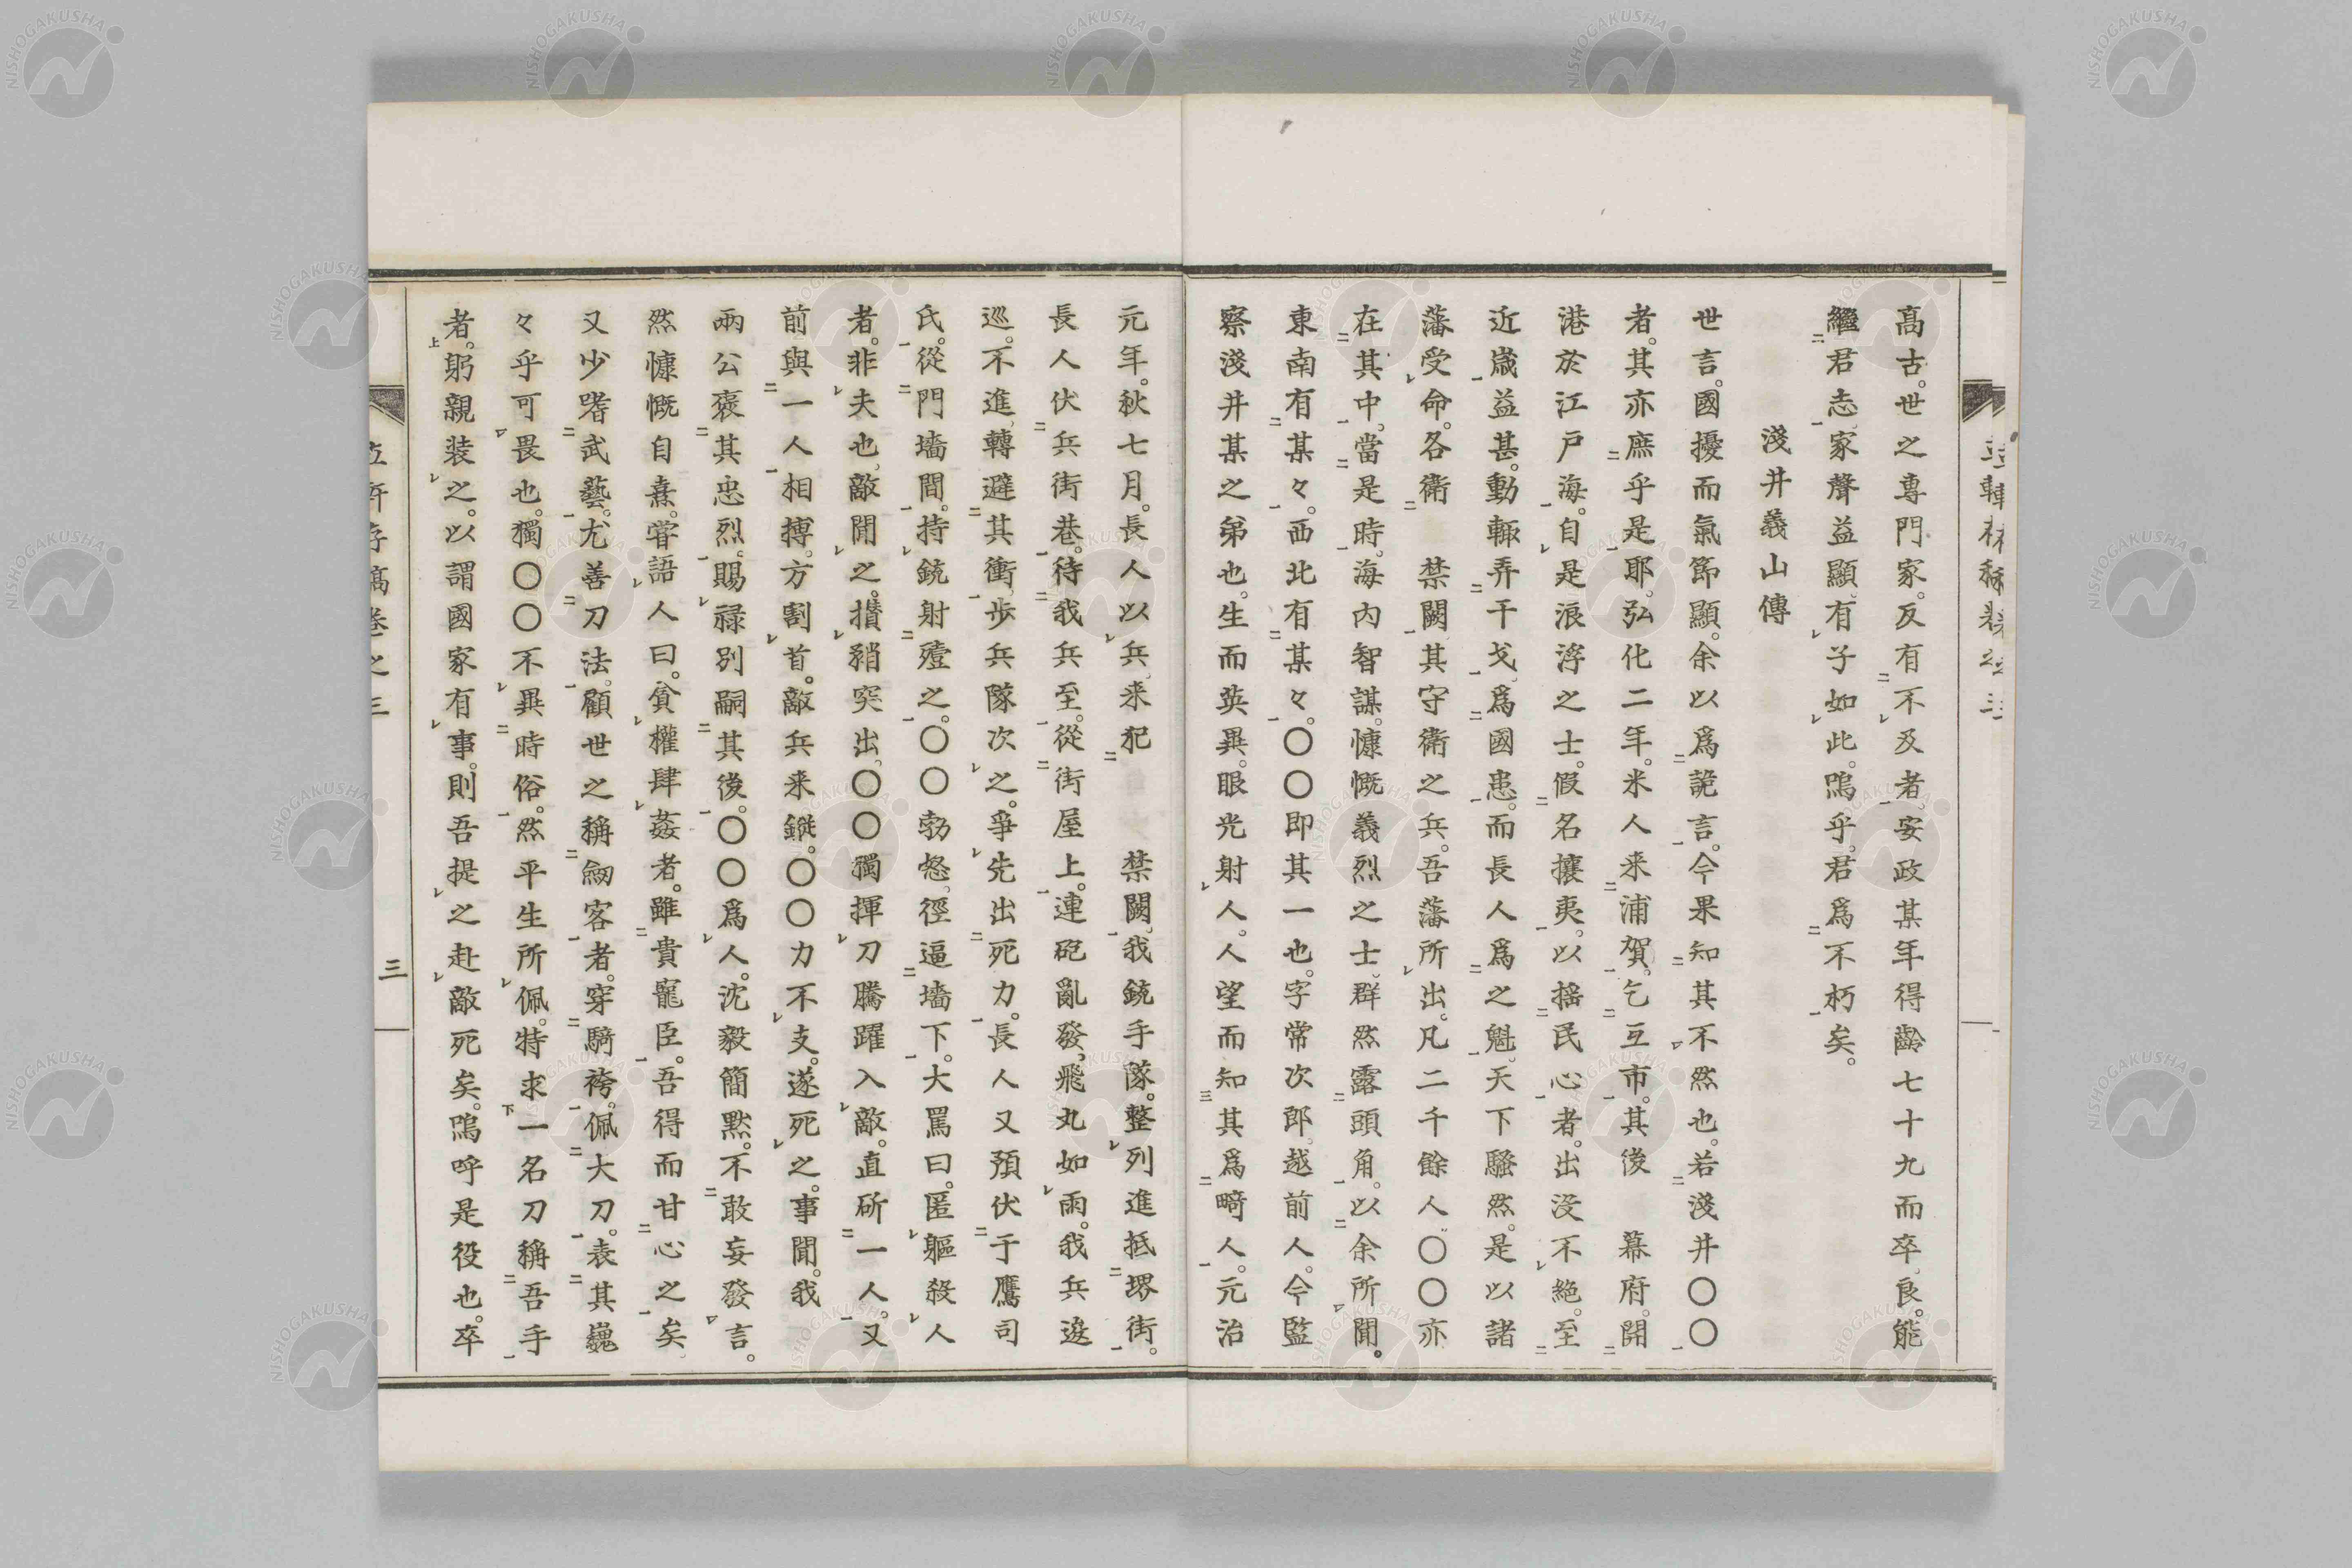 高古。世之專門家。反有不及者。安政某年得齡七十九而卒。良。能
繼君志。家聲益顯。有子如此。嗚乎。君爲不朽矣。
淺井義山傳
世言。國擾而氣節顯。余以爲詭言。今果知其不然也。若淺井〇〇
者。其亦庶乎是耶。弘化二年。米人来浦賀。乞互市。其後　幕府。開
港於江戸海。自是浪浮之士。假名攘夷。以揺民心者。出没不絶。至
近歳益甚。動輙弄干戈。爲國患。而長人爲之魁。天下騒然。是以諸
藩受命。各衛　禁闕。其守衛之兵。吾藩所出。凡二千餘人。〇〇亦
在其中。當是時。海内智謀。慷慨義烈之士。群然露頭角。以余所聞。
東南有某々。西北有某々。〇〇即其一也。字常次郎。越前人。今監
察淺井某之弟也。生而英異。眼光射人。人望而知其爲畸人。元治
元年。秋七月。長人以兵来犯　禁闕。我銃手隊。整列進抵堺街。
長人伏兵街巷。待我兵至。從街屋上。連砲亂發。飛丸如雨。我兵逡
巡。不進。轉避其衝。歩兵隊次之。爭先出死力。長人又預伏于鷹司
氏。從門墻間。持銃射殪之。〇〇勃怒。徑逼墻下。大罵曰。匿軀殺人
者。非夫也。敵聞之。攅矟突出。〇〇獨揮刀騰躍入敵。直斫一人。又
前與一人相搏。方割首。敵兵来鏦。〇〇力不支。遂死之。事聞。我
兩公褒其忠烈。賜禄別嗣其後。〇〇爲人。沈毅簡黙。不敢妄發言。
然慷慨自熹。甞語人曰。貪權肆姦者。雖貴寵臣。吾得而甘心之矣。
又少嗜武藝。尤善刀法。顧世之稱劔客者。穿騎袴。佩大刀。表其巍
々乎可畏也。獨〇〇不異時俗。然平生所佩。特求一名刀稱吾手
者。躬親装之。以謂國家有事。則吾提之赴敵死矣。嗚呼是役也。卒
三